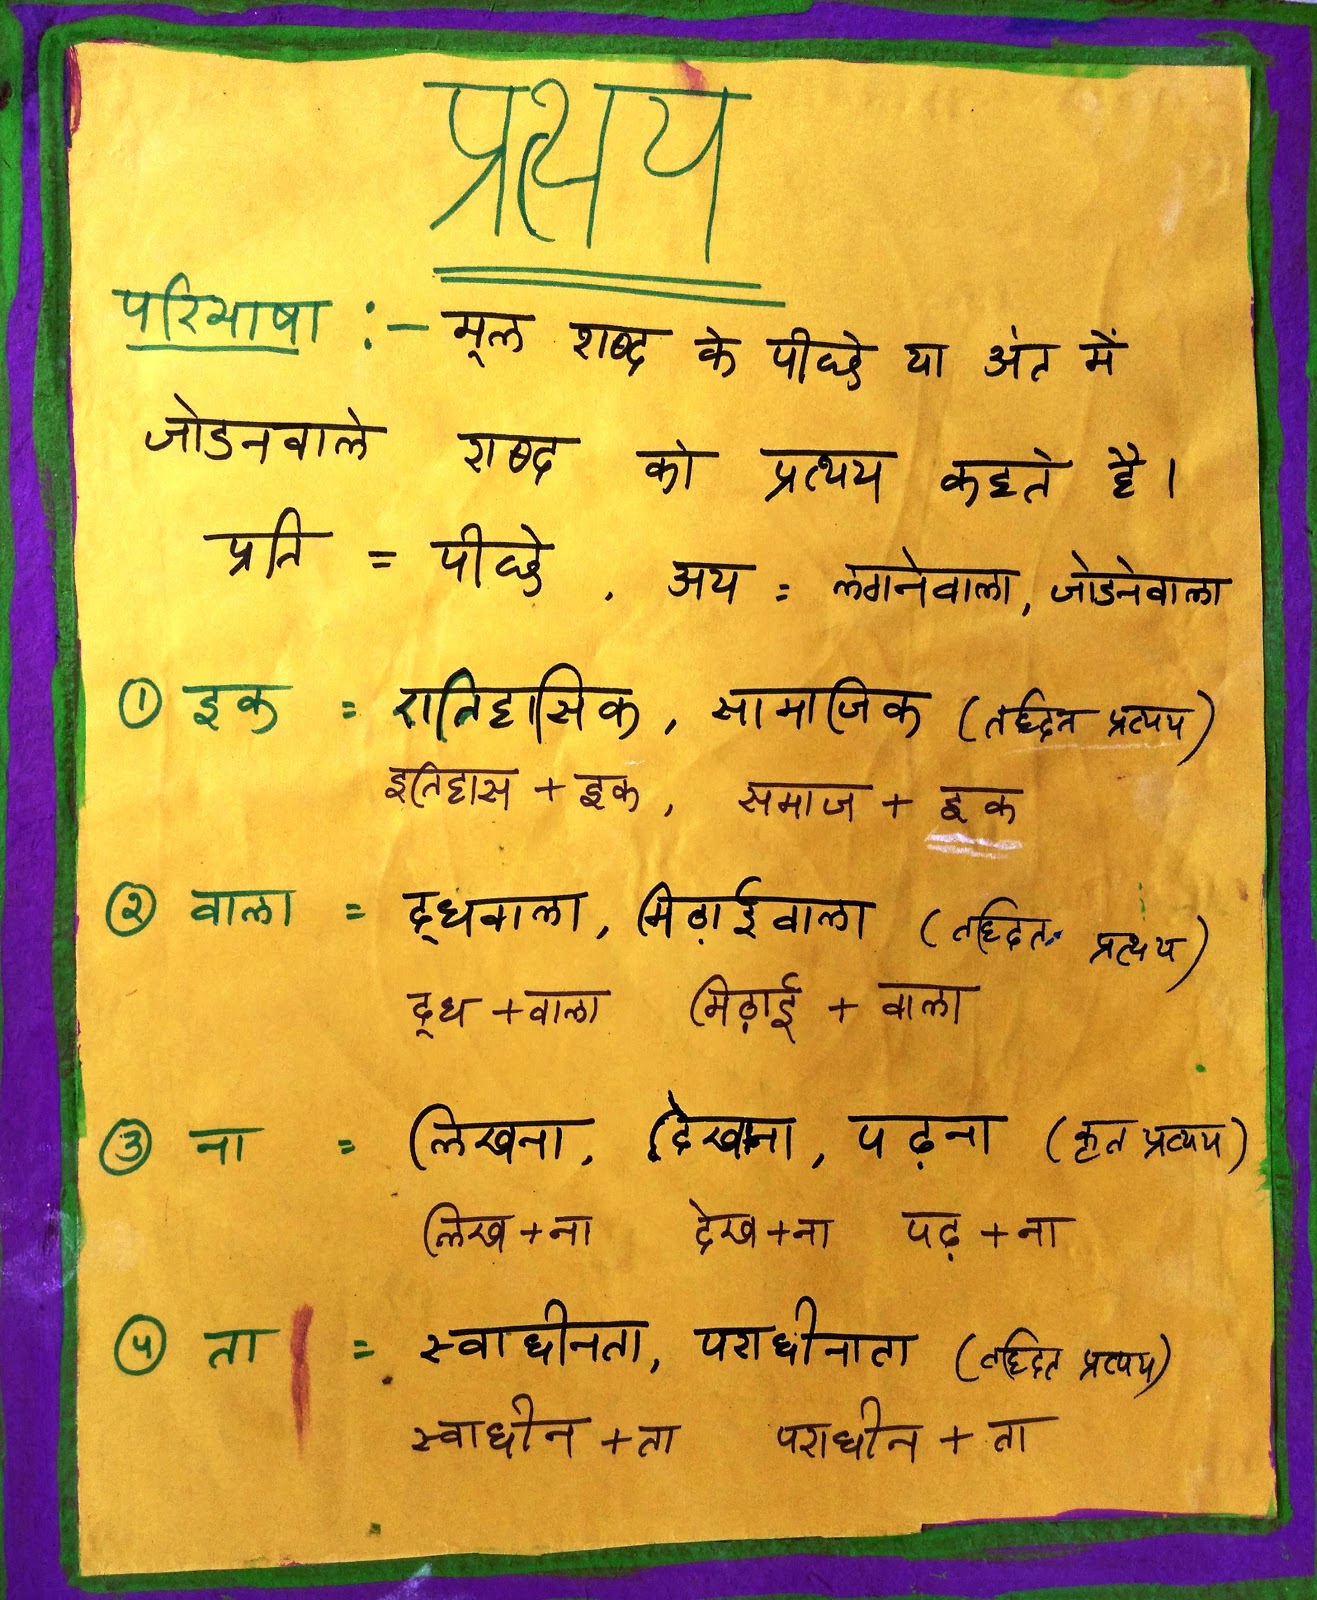 प्रत्यय
परिभाषा :- मूल शब्द के पीछे या अंत में
जोडनवाले शब्द को प्रत्यय कहते है।
प्रति = पीछे , अय = लगनेवाला, जोडनेवाला
① इक = एातिहासिक, सामाजिक (तद्धित प्रत्यय)
इतिहास + इक, समाज + इक
② वाला = दूधवाला, मिठ़ाईवाला (तद्धित प्रत्यय)
दूध + वाला मिठ़ाई + वाला
③ ना = लिखना, देखना, पढ़ना (कृत प्रत्यय)
लिख + ना देख + ना पढ़ + ना
④ ता = स्वाधीनता, पराधीनाता (तद्धित प्रत्यय)
स्वाधीन + ता पराधीन + ता